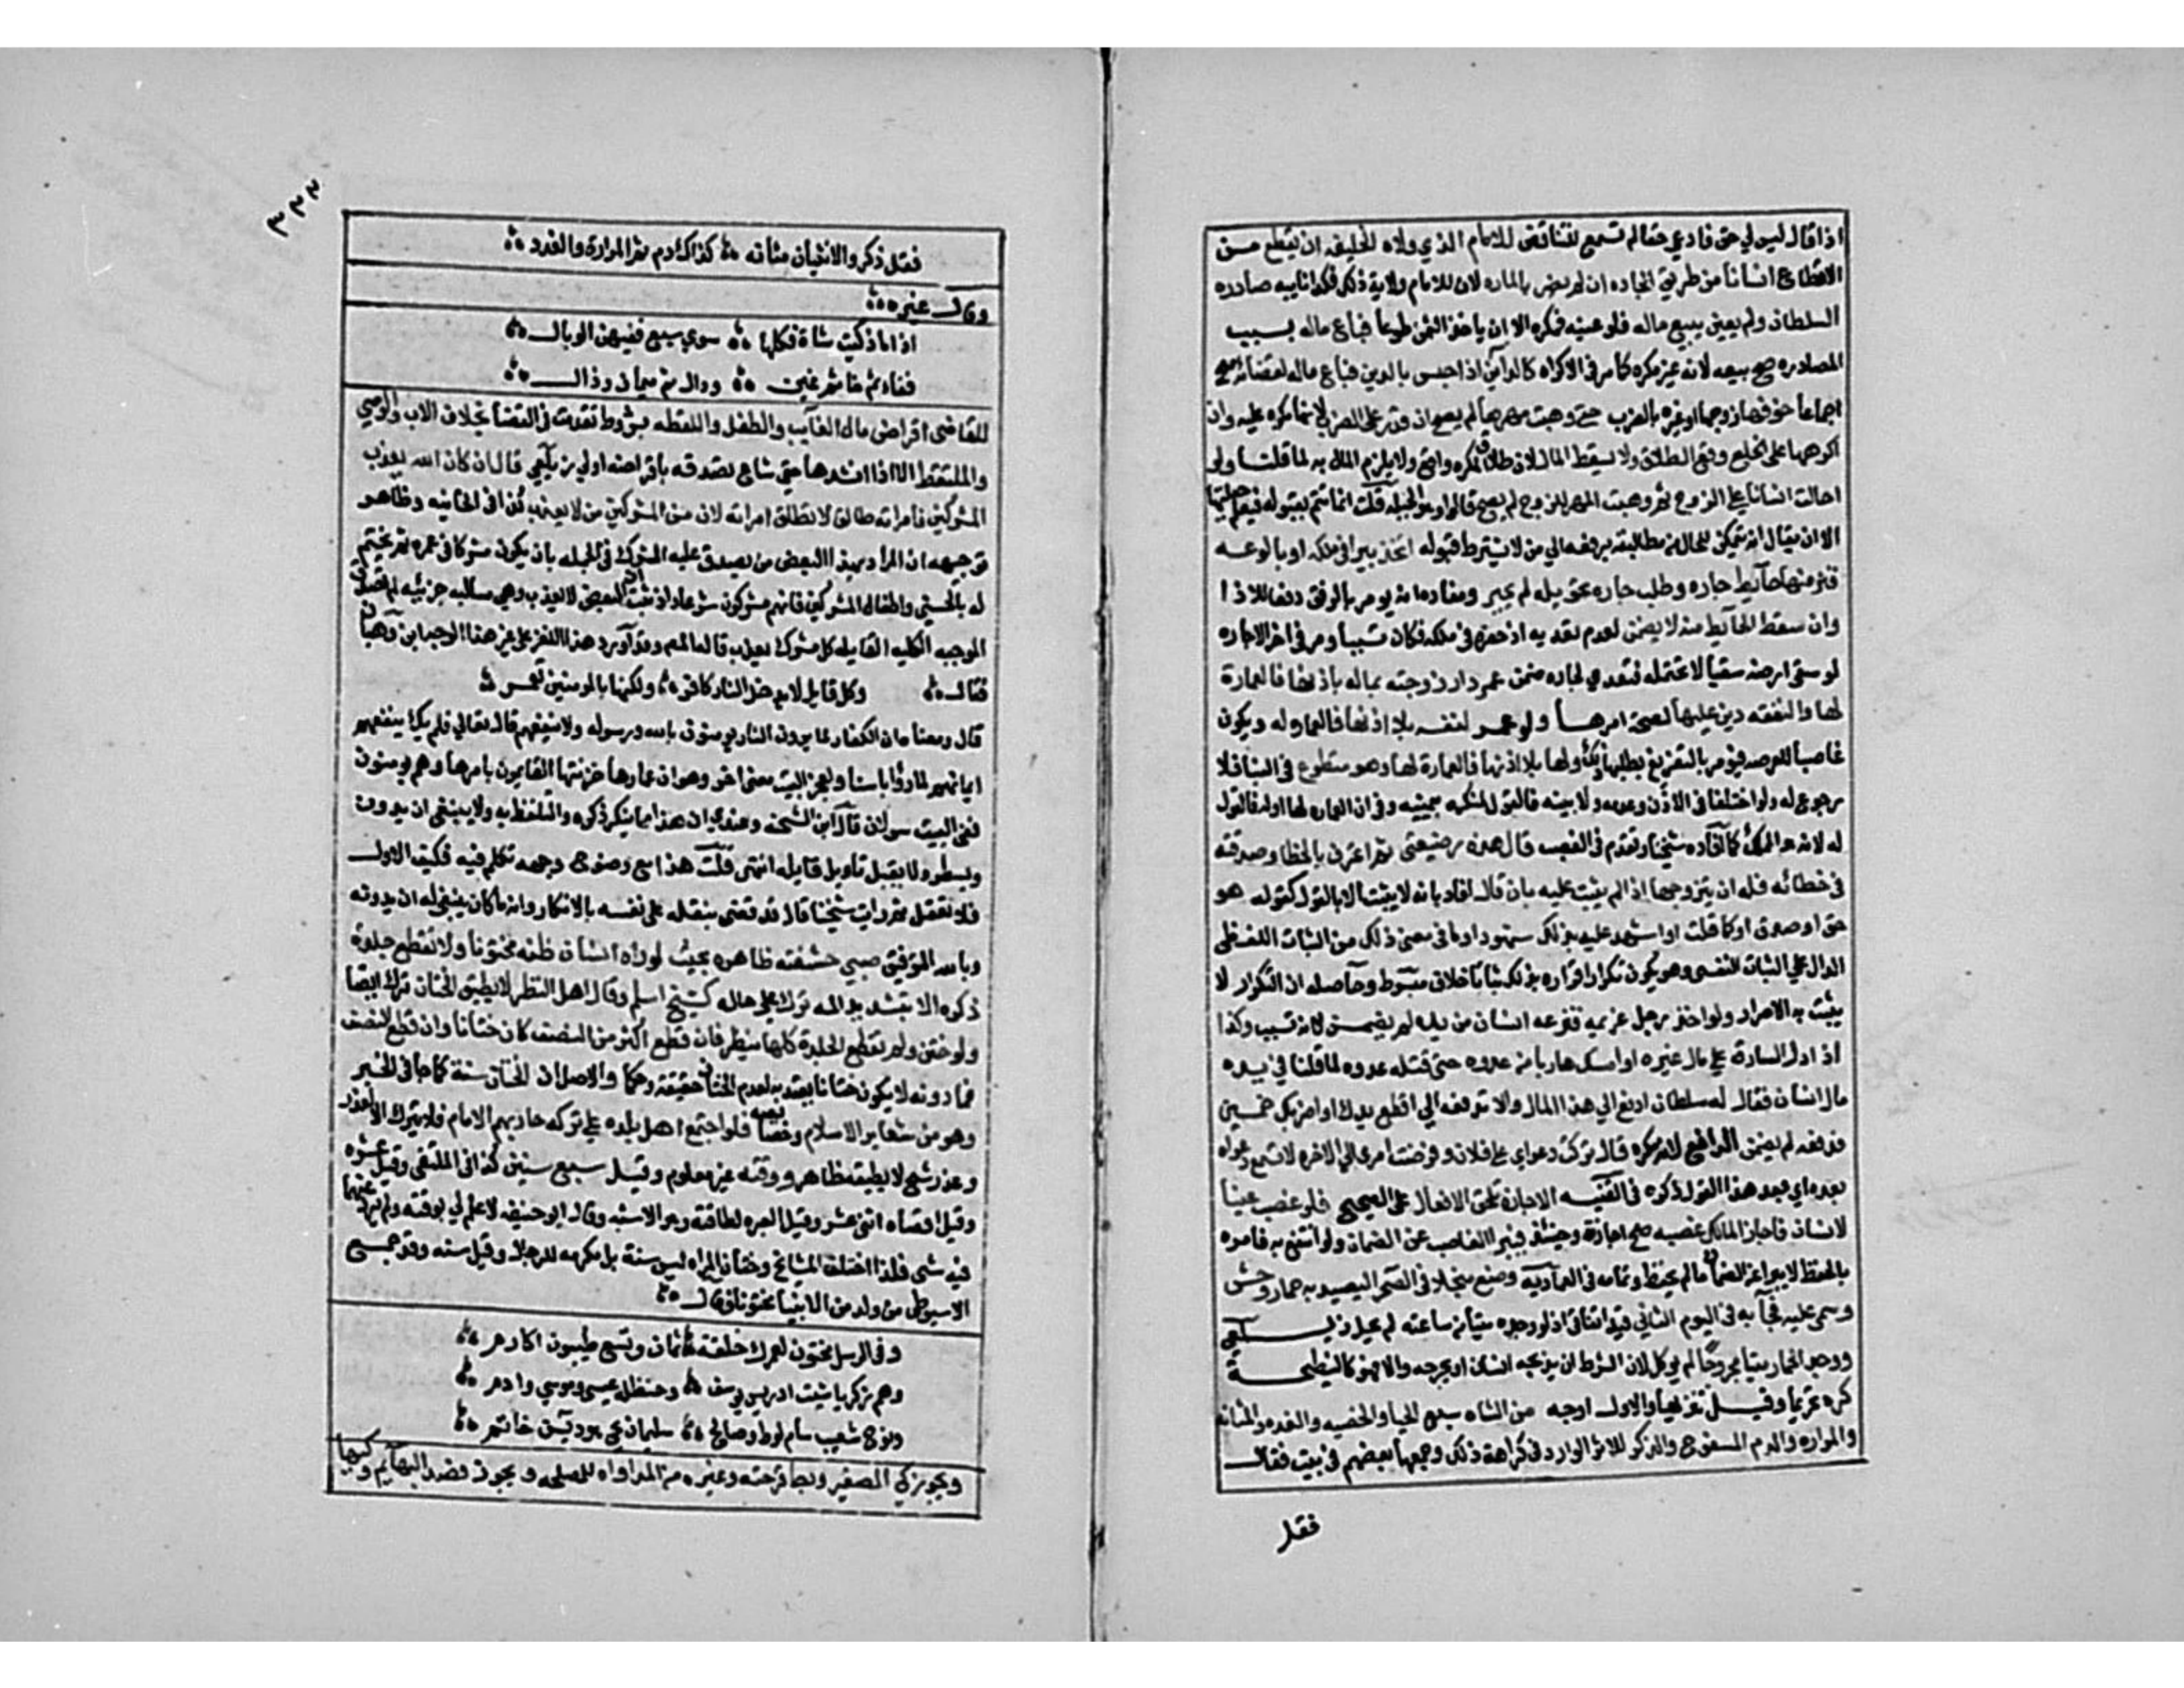 اذا قال ليس لي حق فادعي حقا لم تسمع للتناقض للامام الذي ولاه الخليفه ان يقطع مـن
الاقطاع انسانا من طريق الجاده ان لم يضر بالماره لان للامام ولاية ذلك فكذا نايبه صادره
السلطان ولم يعين ببيع ماله فلو عينه فمكره الا ان ياخذ الثمن طوعا فباع ماله بسبب
المصادره صح بيعه لانه غير مكره كما مر في الاكراه كالداين اذا حبس بالدين فباع ماله لقضائه صح
اجماعا خوفها زوجها او غيره بالضرب حتي وهبت مهرها لم يصح ان قدر علي الضرب لانها مكره عليه وان
اكرهها علي الخلع وقع الطلاق ولا يسقط المال لان طلاق المكره واقع ولا يلزم المال به لما قلنا ولو
احالت انسانا علي الزوج ثم وهبت المهر للزوج لم يصح قالوا وهو الحيله قلت انما تتم بقبوله فيعلم حيلتها
الا ان يقال انه يتمكن المحال من مطالبته برفعه الي من لا يشترط قبوله اتخذ بيرا في ملكه او بالوعه
فنز منها حايط جاره وطلب جاره تحويله لم يجبر ومفاده انه يومر بالرفق دفعا للاذا
وان سقط الحايط منه لا يضمن لعدم تعديه اذ حفره في ملكه فكان تسببا ومر في اخر الاجاره
لو سقي ارضه سقيا لا تحتمله فتعدي لجاره ضمن عمر دار زوجته بماله باذنها فالعمارة
لها والنفقه دين عليها لصحة امرها ولو عمر لنفسه بلا اذنها فالعماره له ويكون
غاصبا للعرصه فيومر بالتفريغ بطلبها ذلك ولها بلا اذنها فالعمارة لها وهو متطوع في البنا فلا
رجوع له ولو اختلفا في الاذن وعدمه ولا بينه فالقول لمنكره بيمينه وفي ان العماره لها او له فالقول
له لانه هو المملك كما افاده شيخنا وتقدم في الغصب قال هذه رضيعتي ثم اعترف بالخطا وصدقته
في خطائه فله ان يتزوجها اذا لم يثبت عليه بان قال افاد بانه لا يثبت الا بالقول كقوله هو
حق او صدق او كما قلت او اشهد عليه بذلك شهودا وما في معني ذلك من الثبات اللفظي
الدال علي الثبات النفسي وهو يكون تكرار اقراره بذلك ثباتا خلاف مبسوط وحاصله ان التكرار لا
يثبت به الاصرار ولو اخذ رجل غريمه فنزعه انسان من يده لم يضمن لانه تسبب وكذا
اذا دل السارق علي مال غيره او امسك هاربا من عدوه حتي قتله عدوه لما قلنا في يده
مال انسان فقال له سلطان ادفع الي هذا المال والا تدفعه الي اقطع يدك او اضربك خمسين
فدفعه لم يضمن الدافع لانه مكره قال تركت دعواي علي فلان وفوضت امري الي الاخره لا تسمع دعواه
بعده اي بعد هذا القول ذكره في القنيه الاجازة تلحق الافعال علي الصحيح فلو غصب عينا
لانسان فاجاز المالك غصبه صح اجازة وحينئذ فيبرا الغاصب عن الضمان ولو انتفع به فامره
بالحفظ لا يبرا عن الضمان ما لم يحفظ وتمامه في العماديه وضع منجلا في الصحرا ليصيد به حمار وحش
وسمي عليه فجا به في اليوم الثاني قيد اتفاقي اذ لو وجده ميتا من ساعته لم يحل زيلعي
ووجد الحمار ميتا مجروحا لم يوكل لان الشرط ان يذبحه انسان او يجرحه والا فهو كالنطيحة
كره تحريما وقيل تنزيها والاول اوجه من الشاه سبع الحيا والخصيه والغده والمثانه
والمراره والدم المسفوح والذكر للاثر الوارد في كراهة ذلك وجمعها بعضهم في بيت فقال
فقل
٣٣٣
فقل ذكر والانثيان مثانه كذاك دم ثم المرارة والغدد
وقال غيره
اذا ما ذكيت شاة فكلها سوي سبع ففيهن الوبال
ففاء ثم خاء ثم غين ودال ثم ميمان وذال
للقاضي اقراض مال الغايب والطفل واللقطه بشروط تقدمت في القضا بخلاف الاب والوصي
والملتقط الا اذا انشدها حتي ساغ تصدقه باقراضه اولي زيلعي قال ان كان الله يعذب
المشركين فامراته طالق لا تطلق امراته لان من المشركين من لا يعذب كذا في الخانيه وظاهر
توجيهه ان المراد بهذا البعض من يصدق عليه المشرك في الجمله بان يكون مشركا في عمره ثم يختم
له بالحسني واطفال المشركين فانهم مشركون شرعا واذا ثبت البعض لا يعذب وهي سالبه جزئيه لم تصدق
الموجبه الكليه القايله كل مشرك يعذب قاله المص وقد اورد هذا اللغز علي غير هذا الوجه ابن وهبان
فقال وكل قايل لا يدخل النار كافر ولكنها بالمومنين تعمر
قال ومعناه ان الكفار لما يرون النار يومنون بالله ورسوله ولا ينفعهم قال تعالي فلم يك ينفعهم
ايمانهم لما رؤا باسنا ولعجز البيت معني اخر وهو ان عمارها خزنتها القايمون بامرها وهم يومنون
ففي البيت سوالان قال ابن الشحنه وعندي ان هذا مما ينكر ذكره والتلفظ به ولا ينبغي ان يدون
ويسطر ولا يقبل تاويل قايله انتهي قلت هذا مع وضوح وجهه تكلم فيه فكيف الاول
فلا تغفل ثم رايت شيخنا قال قد قضي بنقله علي نفسه بالانكار وانه ما كان ينبغي له ان يدونه
وبالله التوفيق صبي حشفته ظاهره بحيث لو راه انسان ظنه مختونا ولا تقطع جلدة
ذكره الا بتشديد المه ترك علي حاله كشيخ اسلم وقال اهل النظر لا يطيق الختان ترك ايضا
ولو ختن ولم تقطع الجلدة كلها ينظر فان قطع اكثر من النصف كان ختانا وان قطع النصف
فما دونه لا يكون ختانا يعتد به لعدم الختان حقيقة وحكما والاصل ان الختان سنة كما جا في الخبر
وهو من شعاير الاسلام وخصايصه فلو اجتمع اهل بلده علي تركه حاربهم الامام فلا يترك الا لعذر
وعذر شيخ لا يطيقه ظاهر ووقته غير معلوم وقيل سبع سنين كذا في الملتقي وقيل عشره
وقيل اقصاه اثني عشر وقيل العبره لطاقته وهو الاشبه وقال ابو حنيفه لا علم لي بوقته ولم يرد عنهما
فيه شي فلذا اختلف المشايخ وختان المراه ليس سنة بل مكرمه للرجال وقيل سنه وقد جمع
الاسيوطي من ولد من الانبيا مختونا فقال
وفي الرسل مختون لعمرك خلقة ثمان وتسع طيبون اكارم
وهم زكريا شيث ادريس يوسف وحنظله عيسي وموسي وادم
ونوح شعيب سام لوط وصالح سليمان يحي هود يس خاتم
ويجوز كي الصغير وبط قرحته وغيره من المداواه للمصلحه ويجوز فصد البهايم وكيها